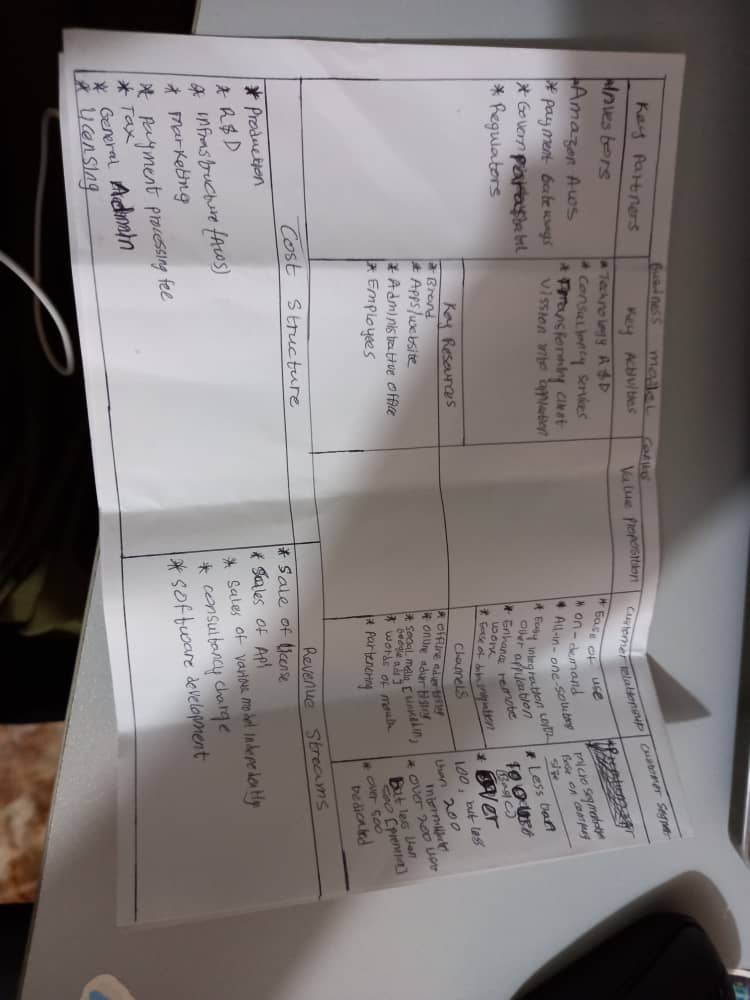 Business model canvas
Key Partners
* Investors
* Amazon AWS
* Payment Gateways
* Regulators
Key Activities
* Technology R&D
* Consultancy services
* Transforming client
vission into application
Key Resources
* Brand
* Apps/website
* Administrative office
* Employees
Value Proposition
Customer relationship
* Ease of use
* on-demand
* All-in-one-solution
* Easy integration with
other application
* Enhance remote
work
* Ease of
Channels
* offline advertising
* online advertising
* social media [linkedIn,
Google ads]
* words of mouth
* Partnering
Customer Segment
microsegmentation
Base on company
size
* Less than
(Basic)
* over
100, but less
than 200
Intermediate
* over 200 
But less than
500 [premium]
* over 500
Dedicated
Cost Structure
* Production
* R&D
* infrastructure (AWS)
* marketing
* payment processing fee
* Tax
* General Admin
* Licensing
Revenue Streams
* Sale of License
* Sales of API
* Sales of various model independently
* consultancy charge
* software development